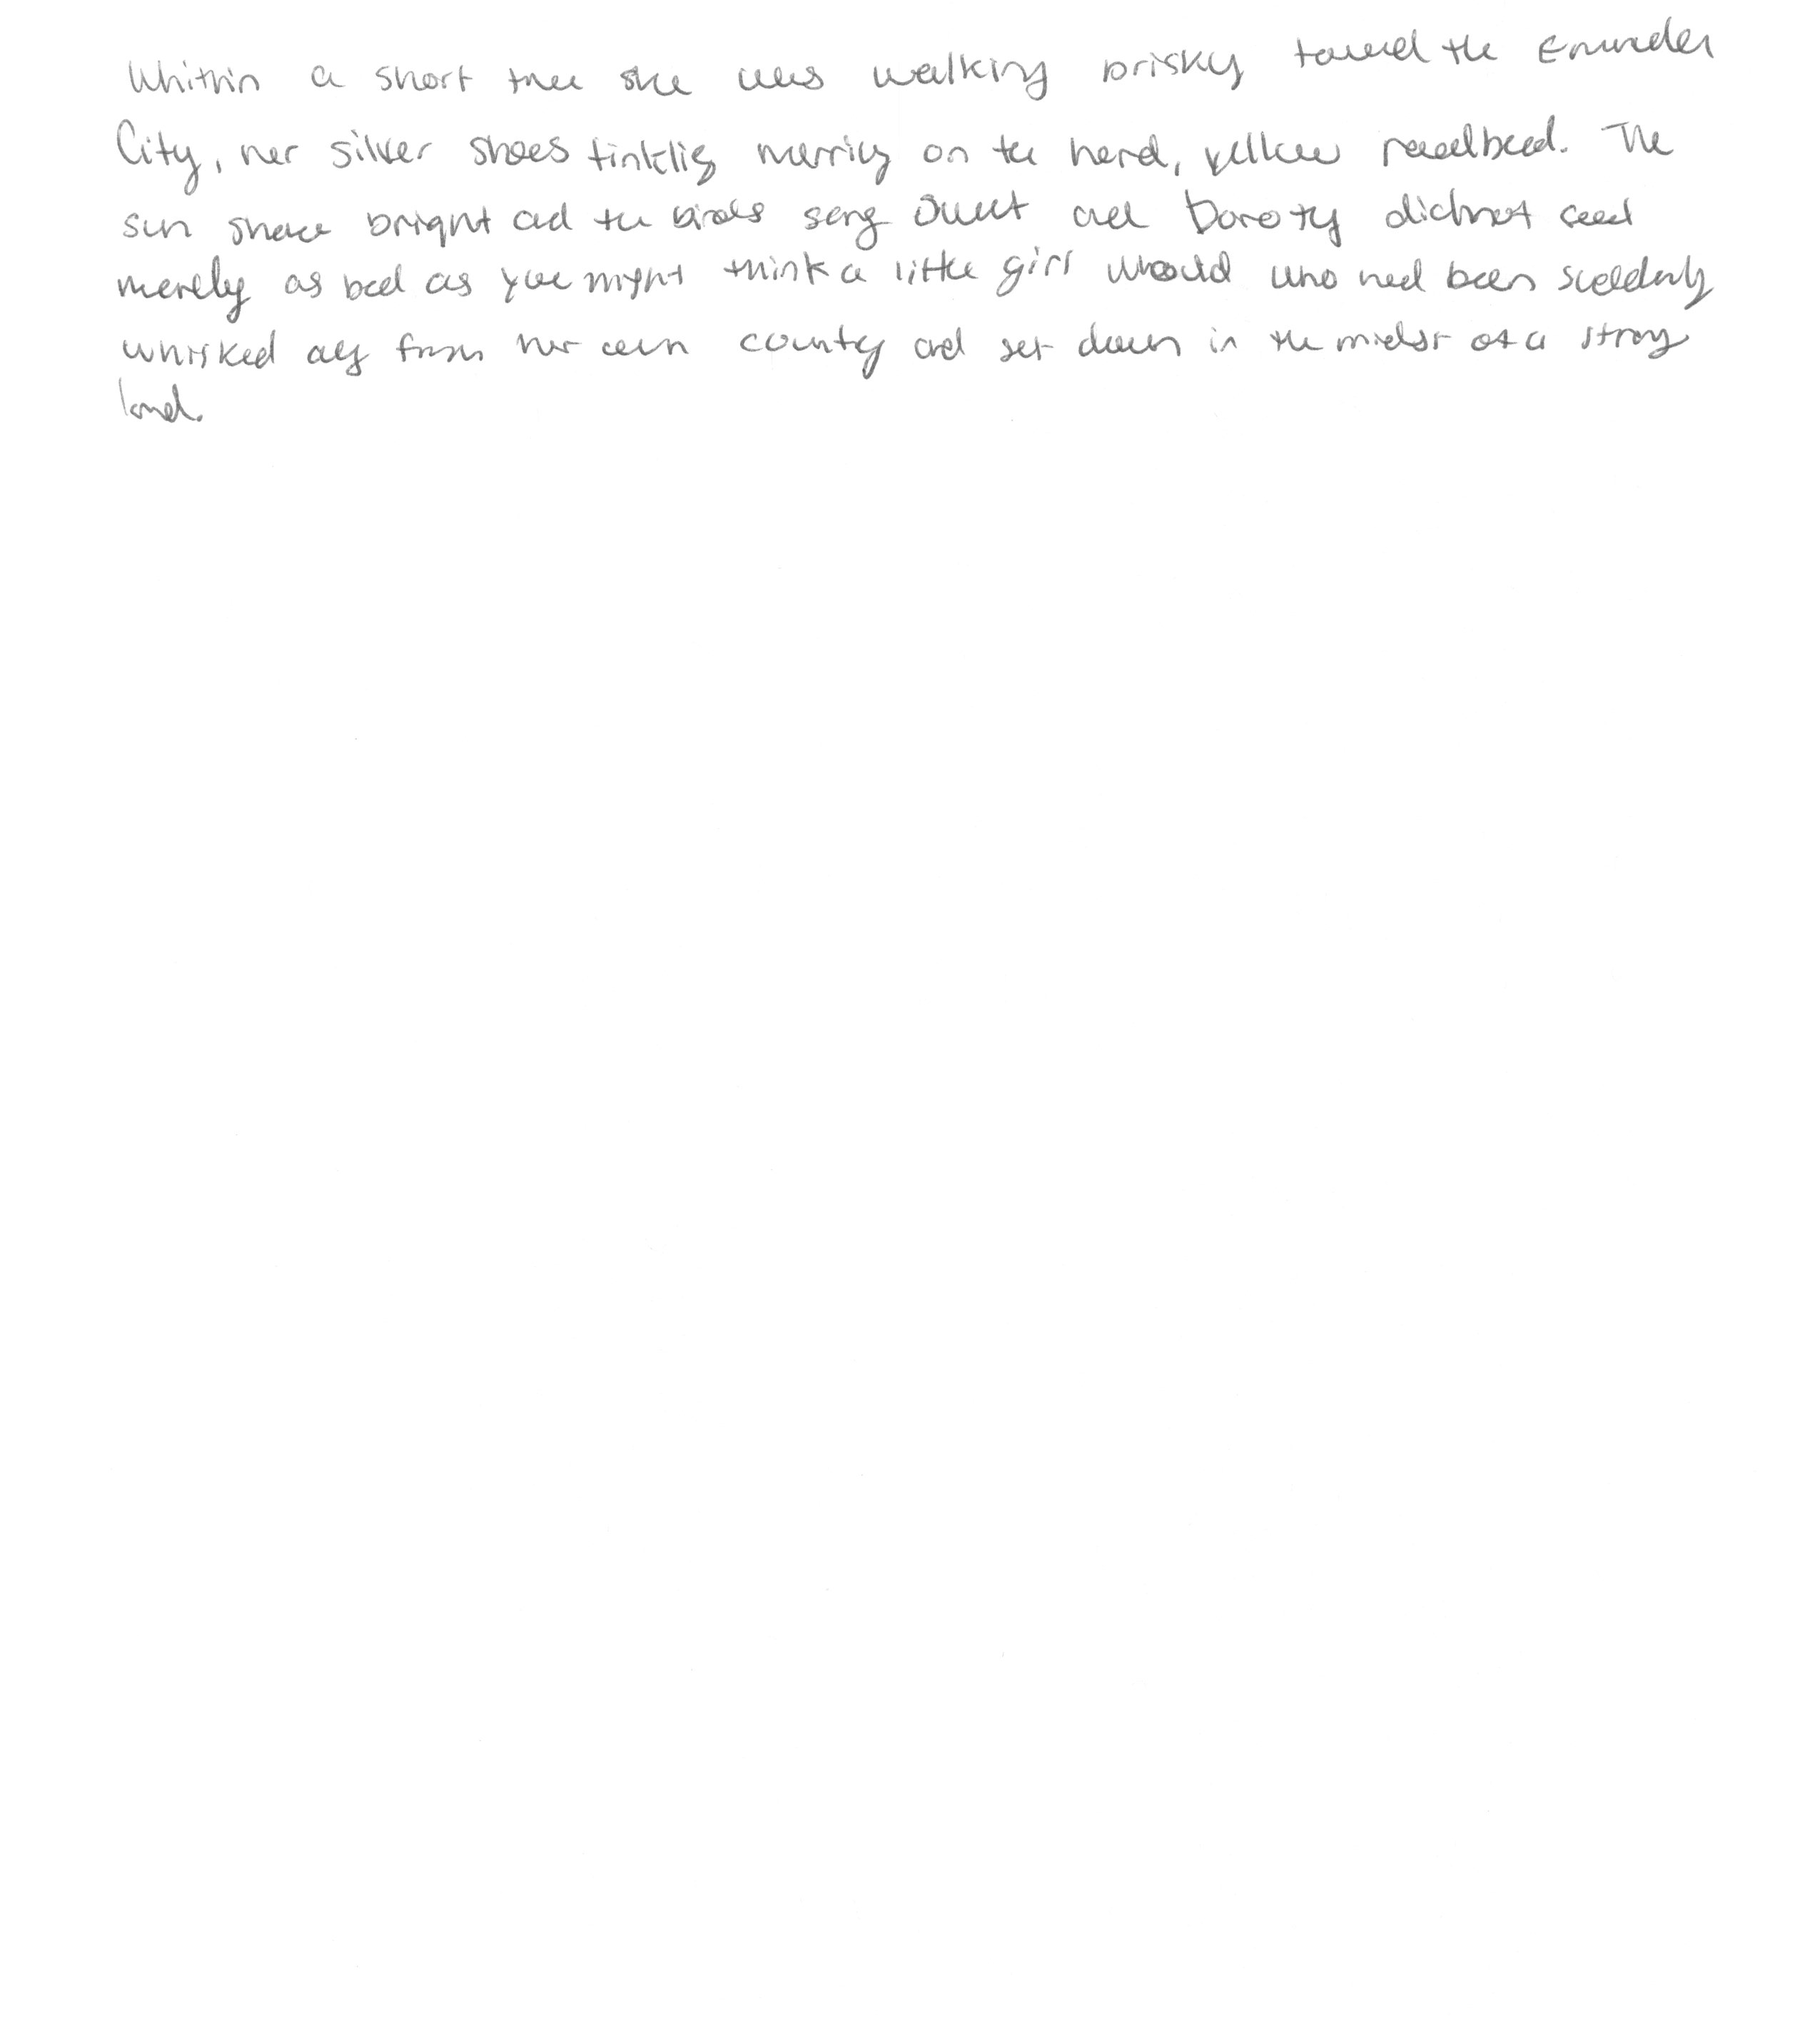 Whithin a short time she was walking brisky toward the Emerder
City, her silver shoes tinklig merrily on the hard, yellow roadbed. The
sun shone bright and the birds sang sweet and Doroty did not feel
merely as bad as you might think a little girl whould who had been suddenly
whisked away from her own county and set down in the midst of a strang
land.